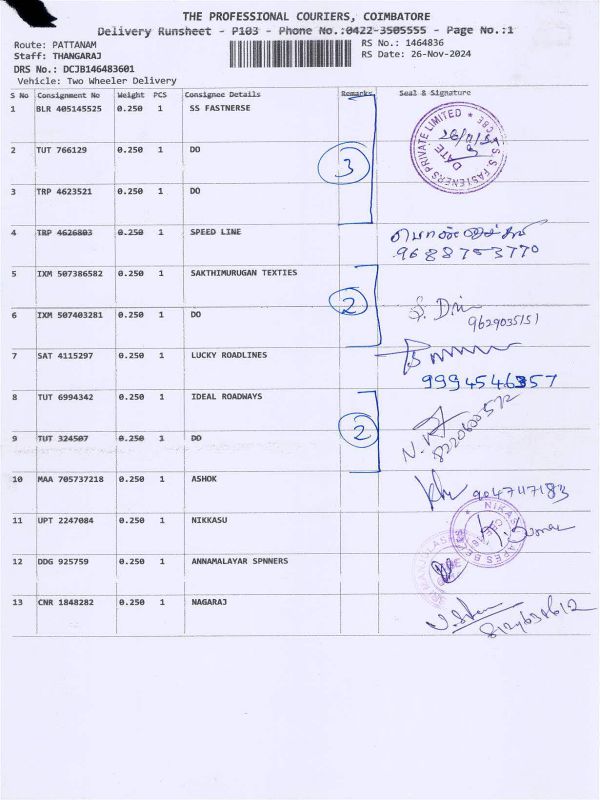 THE PROFESSIONAL COURIERS, COIMBATORE
Delivery Runsheet - P103 - Phone No.:0422-3505555 - Page No.:1
Route: PATTANAM
RS No.: 1464836
Staff: THANGARAJ
RS Date: 26-Nov-2024
DRS No.: DCJB146483601
Vehicle: Two Wheeler Delivery
S No Consignment No Weight PCS Consignee Details Remarks Seal & Signature
1 BLR 405145525 0.250 1 SS FASTNERSE
2 TUT 766129 0.250 1 DO
3 TRP 4623521 0.250 1 DO
3
S.S. FASTENERS PRIVATE LIMITED ★ CBE
DATE
4 TRP 4626803 0.250 1 SPEED LINE
9688753770
5 IXM 507386582 0.250 1 SAKTHIMURUGAN TEXTIES
6 IXM 507403281 0.250 1 DO
2
9629035151
7 SAT 4115297 0.250 1 LUCKY ROADLINES
9994546357
8 TUT 6994342 0.250 1 IDEAL ROADWAYS
9 TUT 324507 0.250 1 DO
2
8220600572
10 MAA 705737218 0.250 1 ASHOK
11 UPT 2247084 0.250 1 NIKKASU
12 DDG 925759 0.250 1 ANNAMALAYAR SPNNERS
13 CNR 1848282 0.250 1 NAGARAJ